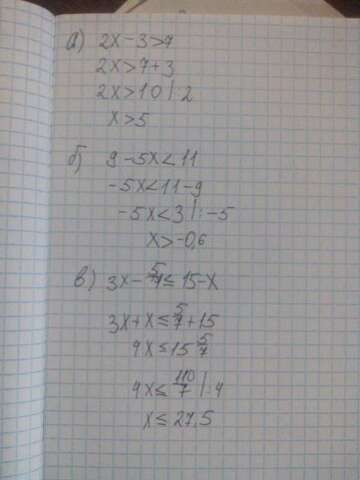 а) 2x-3>7
2x>7+3
2x>10 |:2
x>5
б) 9-5x<11
-5x<11-9
-5x<3 |:-5
x>-0,6
в) 3x-5/7≤15-x
3x+x≤5/7+15
4x≤15 5/7
4x≤110/7 |:4
x≤27,5